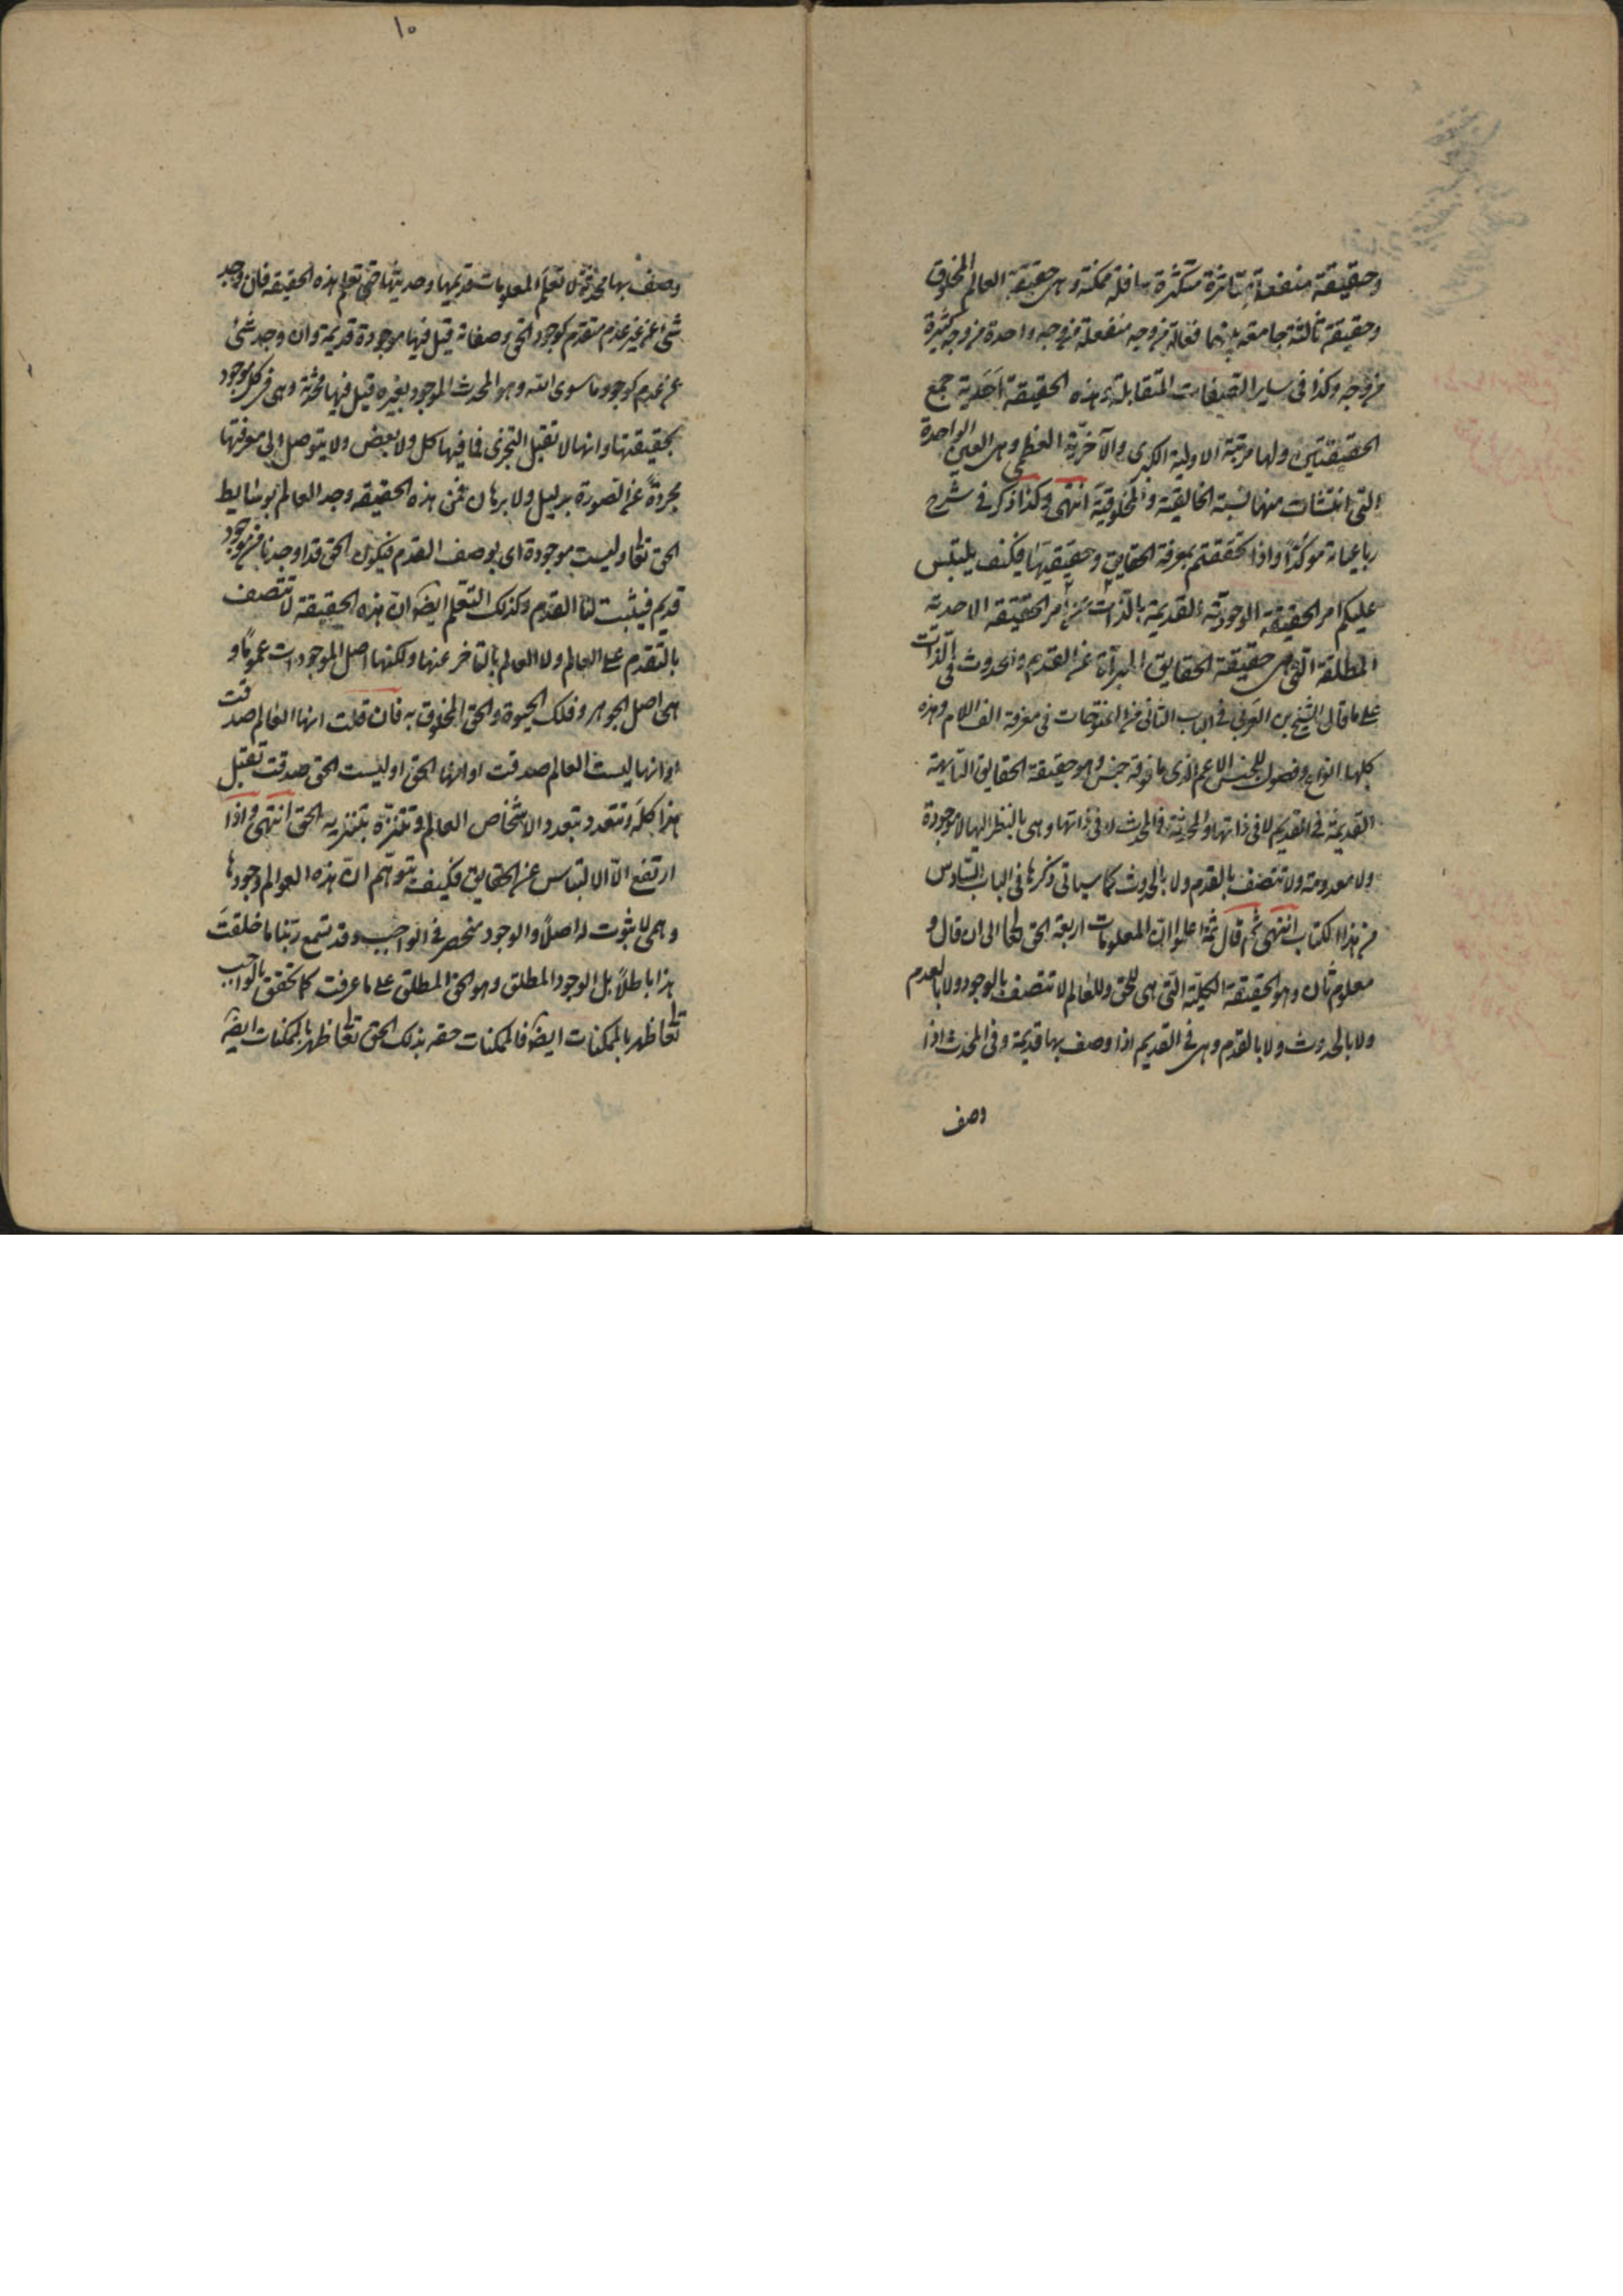 وحقيقة منفعلة متاثرة متكثرة سافلة ممكنة وهى حقيقة العالم المخلوق
وحقيقة ثالثة جامعة بينهما فعالة من وجه منفعلة من وجه واحدة من وجه كثيرة
من وجه وكذا فى ساير الصفات المتقابلة وهذه الحقيقة احدية جمع
الحقيقتين ولها مرتبة الاولية الكبرى والآخرية العظمى وهى العين الواحدة
التى انتشات منها نسبة الخالقية والمخلوقية انتهى وكذا ذكر فى شرح
رباعياته موكدًا واذا تحققتم بمعرفة الحقايق وحقيقيتها فكيف يلتبس
عليكم امر الحقيقة الوجودية القديمة بالذات من امر الحقيقة الاحدية
المطلقة التى هى حقيقة الحقايق المبرآة عن القدم والحدوث فى الذات
على ما قال الشيخ بن العربى فى الباب الثانى من الفتوحات فى معرفة الف اللام وهذه
كلها انواع وفصول للجنس الاعم الذى ما فوقه جنس وهو حقيقة الحقايق التايهة
القديمة فى القديم لا فى ذاتها والمحدثة فى المحدث لا فى ذاتها وهى بالنظر اليها لا موجودة
ولا معدومة ولا تتصف بالقدم ولا بالحدوث كما سياتى ذكرها فى الباب السادس
من هذا الكتاب انتهى ثم قال ثمة اعلموا ان المعلومات اربعة الحق تعالى الى ان قال و
معلوم ثان وهو الحقيقة الكلية التى هى للحق وللعالم لا تتصف بالوجود ولا بالعدم
ولا بالحدوث ولا بالقدم وهى فى القديم اذا وصف بها قديمة وفى المحدث اذا
وصف
١٠
وصف بها محدثة لا تعلم المعلومات قديمها وحديثها حتى تعلم هذه الحقيقة فان وجد
شئ عن غير عدم متقدم كوجود الحق وصفاته قيل فيها موجودة قديمة وان وجد شئ
عن عدم كوجود ما سوى الله وهو المحدث الموجود بغيره قيل فيها محدثة وهى فى كل موجود
بحقيقتها وانها لا تقبل التجزى فما فيها كل ولا بعض ولا يتوصل الى معرفتها
مجردة عن الصورة بدليل ولا برهان فمن هذه الحقيقة وجد العالم بوسايط
الحق تعالى وليست بموجودة اى بوصف القدم فيكون الحق قد اوجدنا من موجود
قديم فيثبت لنا القدم وكذلك التعلم ايضا ان هذه الحقيقة لا تتصف
بالتقدم على العالم ولا العالم بالتاخر عنها ولكنها اصل الموجودات عموما و
هى اصل الجوهر وفلك الحيوة والحق المخلوق به فان قلت انها العالم صدقت
او انها ليست العالم صدقت او انها الحق او ليست الحق صدقت تقبل
هذا كله وتتعدد بتعدد الاشخاص العالم وتتنزه بتنزيه الحق انتهى واذا
ارتفع الآن الالتباس عن الحقايق فكيف تتوهم ان هذه العوالم وجودها
وهمى لا ثبوت له اصلاً والوجود منحصر فى الواجب وقد تسمع ربنا ما خلقت
هذا باطلاً بل الوجود المطلق وهو الحق المطلق على ما عرفت كما تحقق بالواجب
تعالى ظهر بالممكنات ايضا فالممكنات حقه بذلك الحق تعالى ظهر بالممكنات ايضا